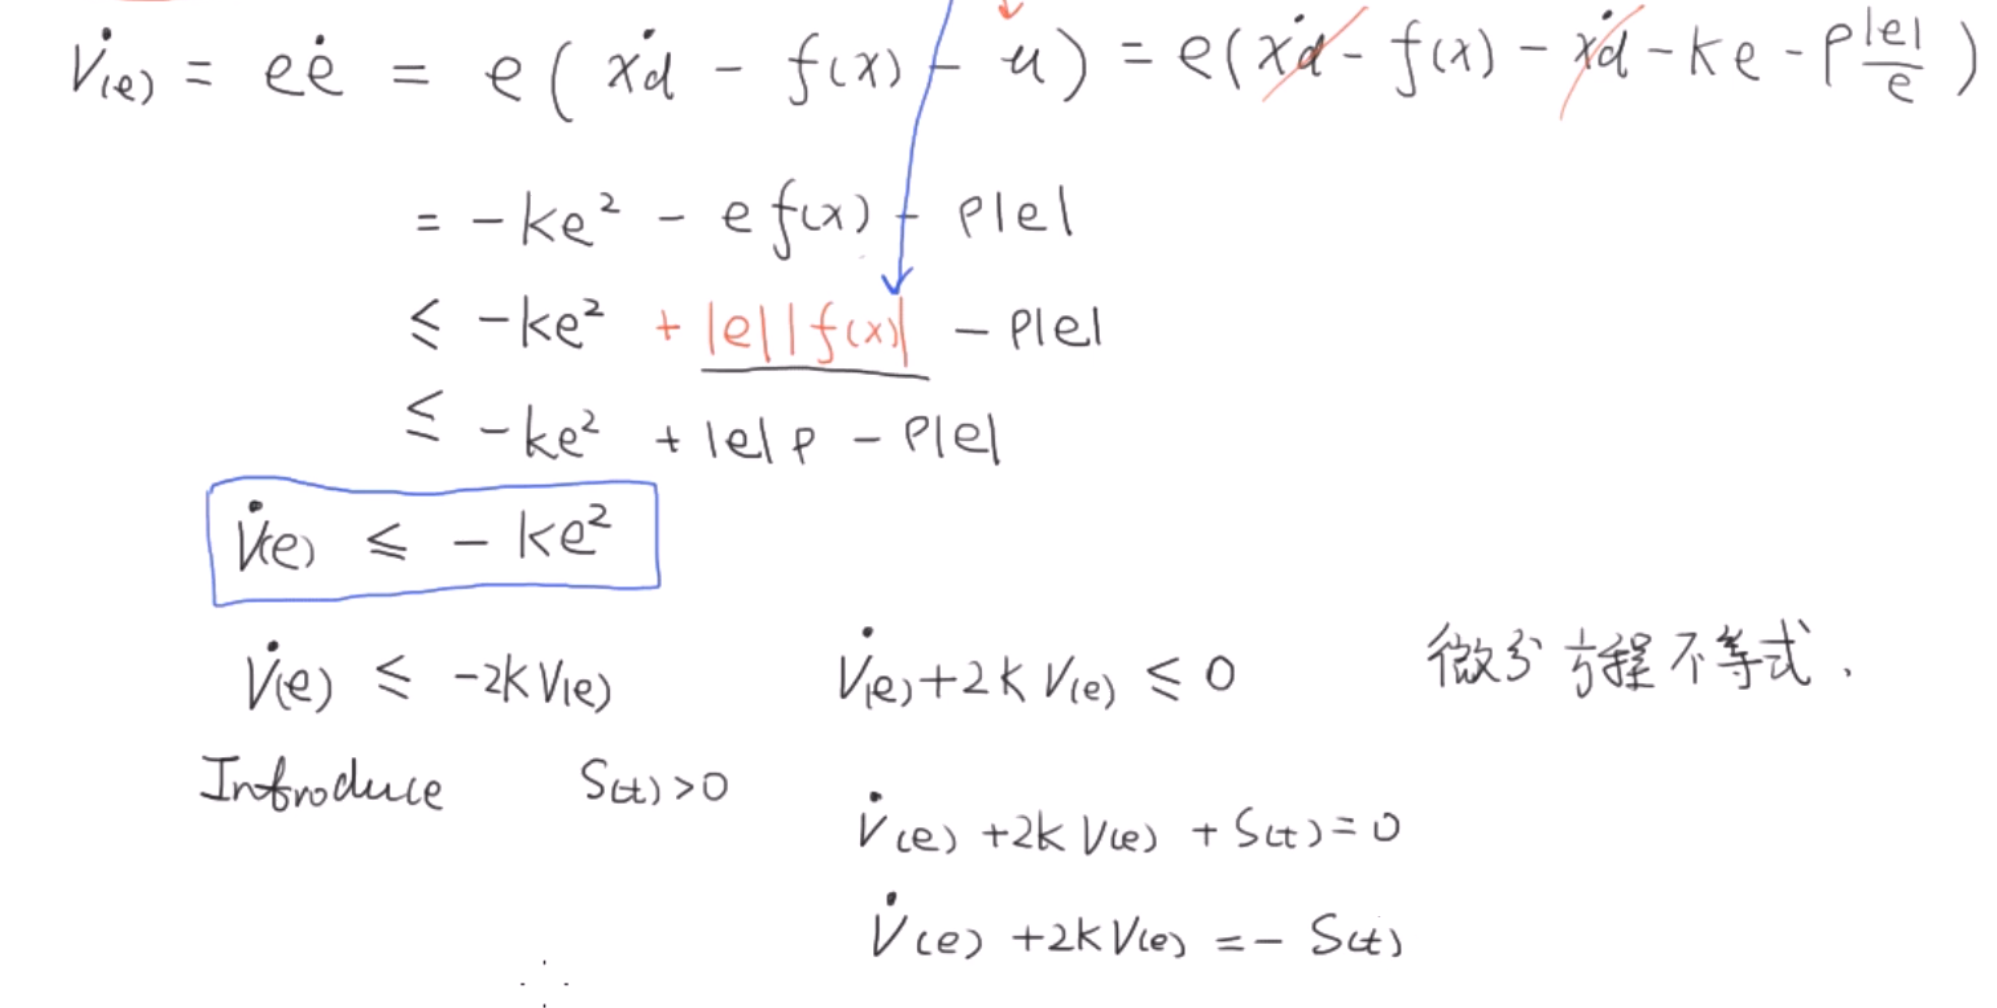 V̇(e) = eė = e( ẋd - f(x) - u ) = e(ẋd - f(x) - ẋd - ke - ρ|e|/e )
= -ke² - e f(x) - ρ|e|
≤ -ke² + |e||f(x)| - ρ|e|
≤ -ke² + |e|ρ - ρ|e|
V̇(e) ≤ - ke²
V̇(e) ≤ -2k V(e) V̇(e)+2k V(e) ≤ 0 微分方程不等式.
Introduce S(t)>0
V̇(e) +2k V(e) + S(t)=0
V̇(e) +2k V(e) = - S(t)